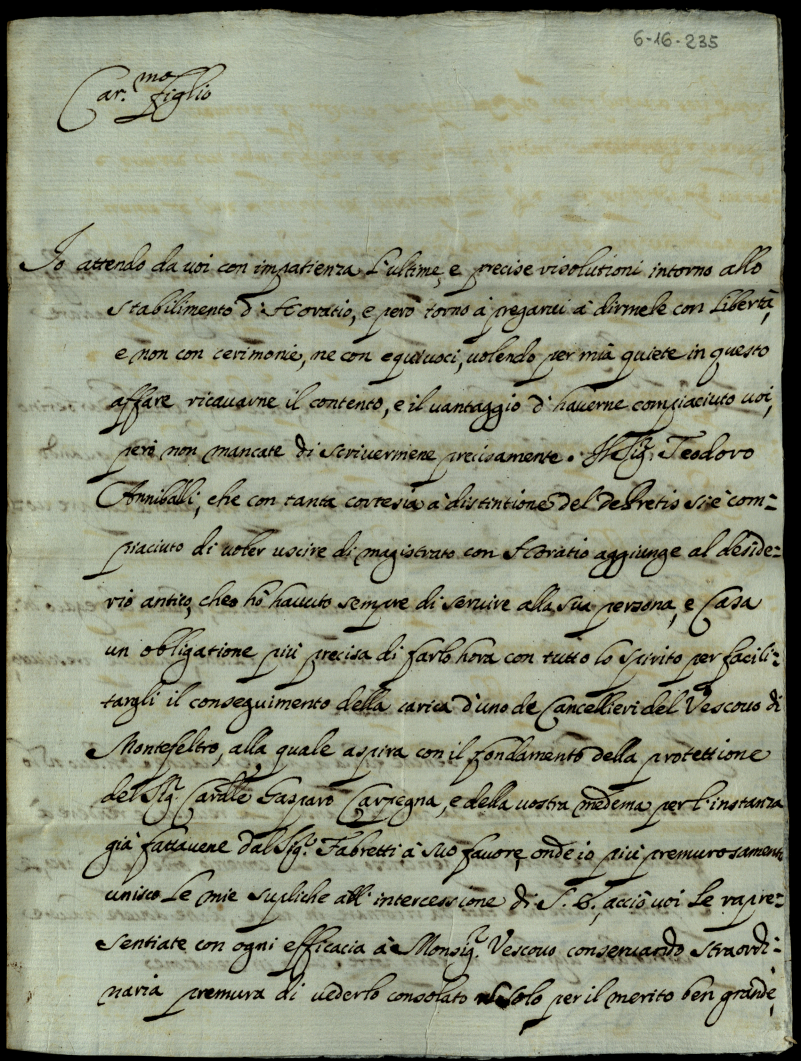 6-16-235
Car.mo figlio
Io attendo da voi con impatienza l'ultime, e precise risolutioni intorno allo
stabilimento d'Horatio, e però torno à pregarvi à dirmele con libertà,
e non con cerimonie, ne con equivoci, volendo per mia quiete in questo
affare ricavarne il contento, e il vantaggio d'haverne compiaciuto voi,
però non mancate di scrivermene precisamente. Il Sig.r Teodoro
Anniballi, che con tanta cortesia à distintione del de Pretis si è com=
piaciuto di voler uscire di magistrato con Horatio aggiunge al deside=
rio antico, che ho havuto sempre di servire alla sua persona, e Casa
un obligatione più precisa di farlo hora con tutto lo spirito per facili=
targli il conseguimento della carica d'uno de Cancellieri del Vescovo di
Montefeltro, alla quale aspira con il fondamento della protettione
del Sig.r Cardle Gasparo Carpegna, e della vostra medema per l'instanza
già fattavene dal Sig.r Fabretti à suo favore, onde io più premurosamente
unisco le mie supliche all'intercessione di S. E., acciò voi le rapre=
sentiate con ogni efficacia à Monsig.r Vescovo conservando straordi=
naria premura di vederlo consolato solo per il merito ben grande,